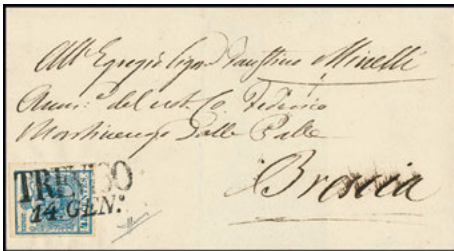 All' Egregio Sigr. Faustino Minelli
Amm.e del nob. Co. Federico
Martinengo Dalle Palle
Brescia
TREVISO
14. GEN.º